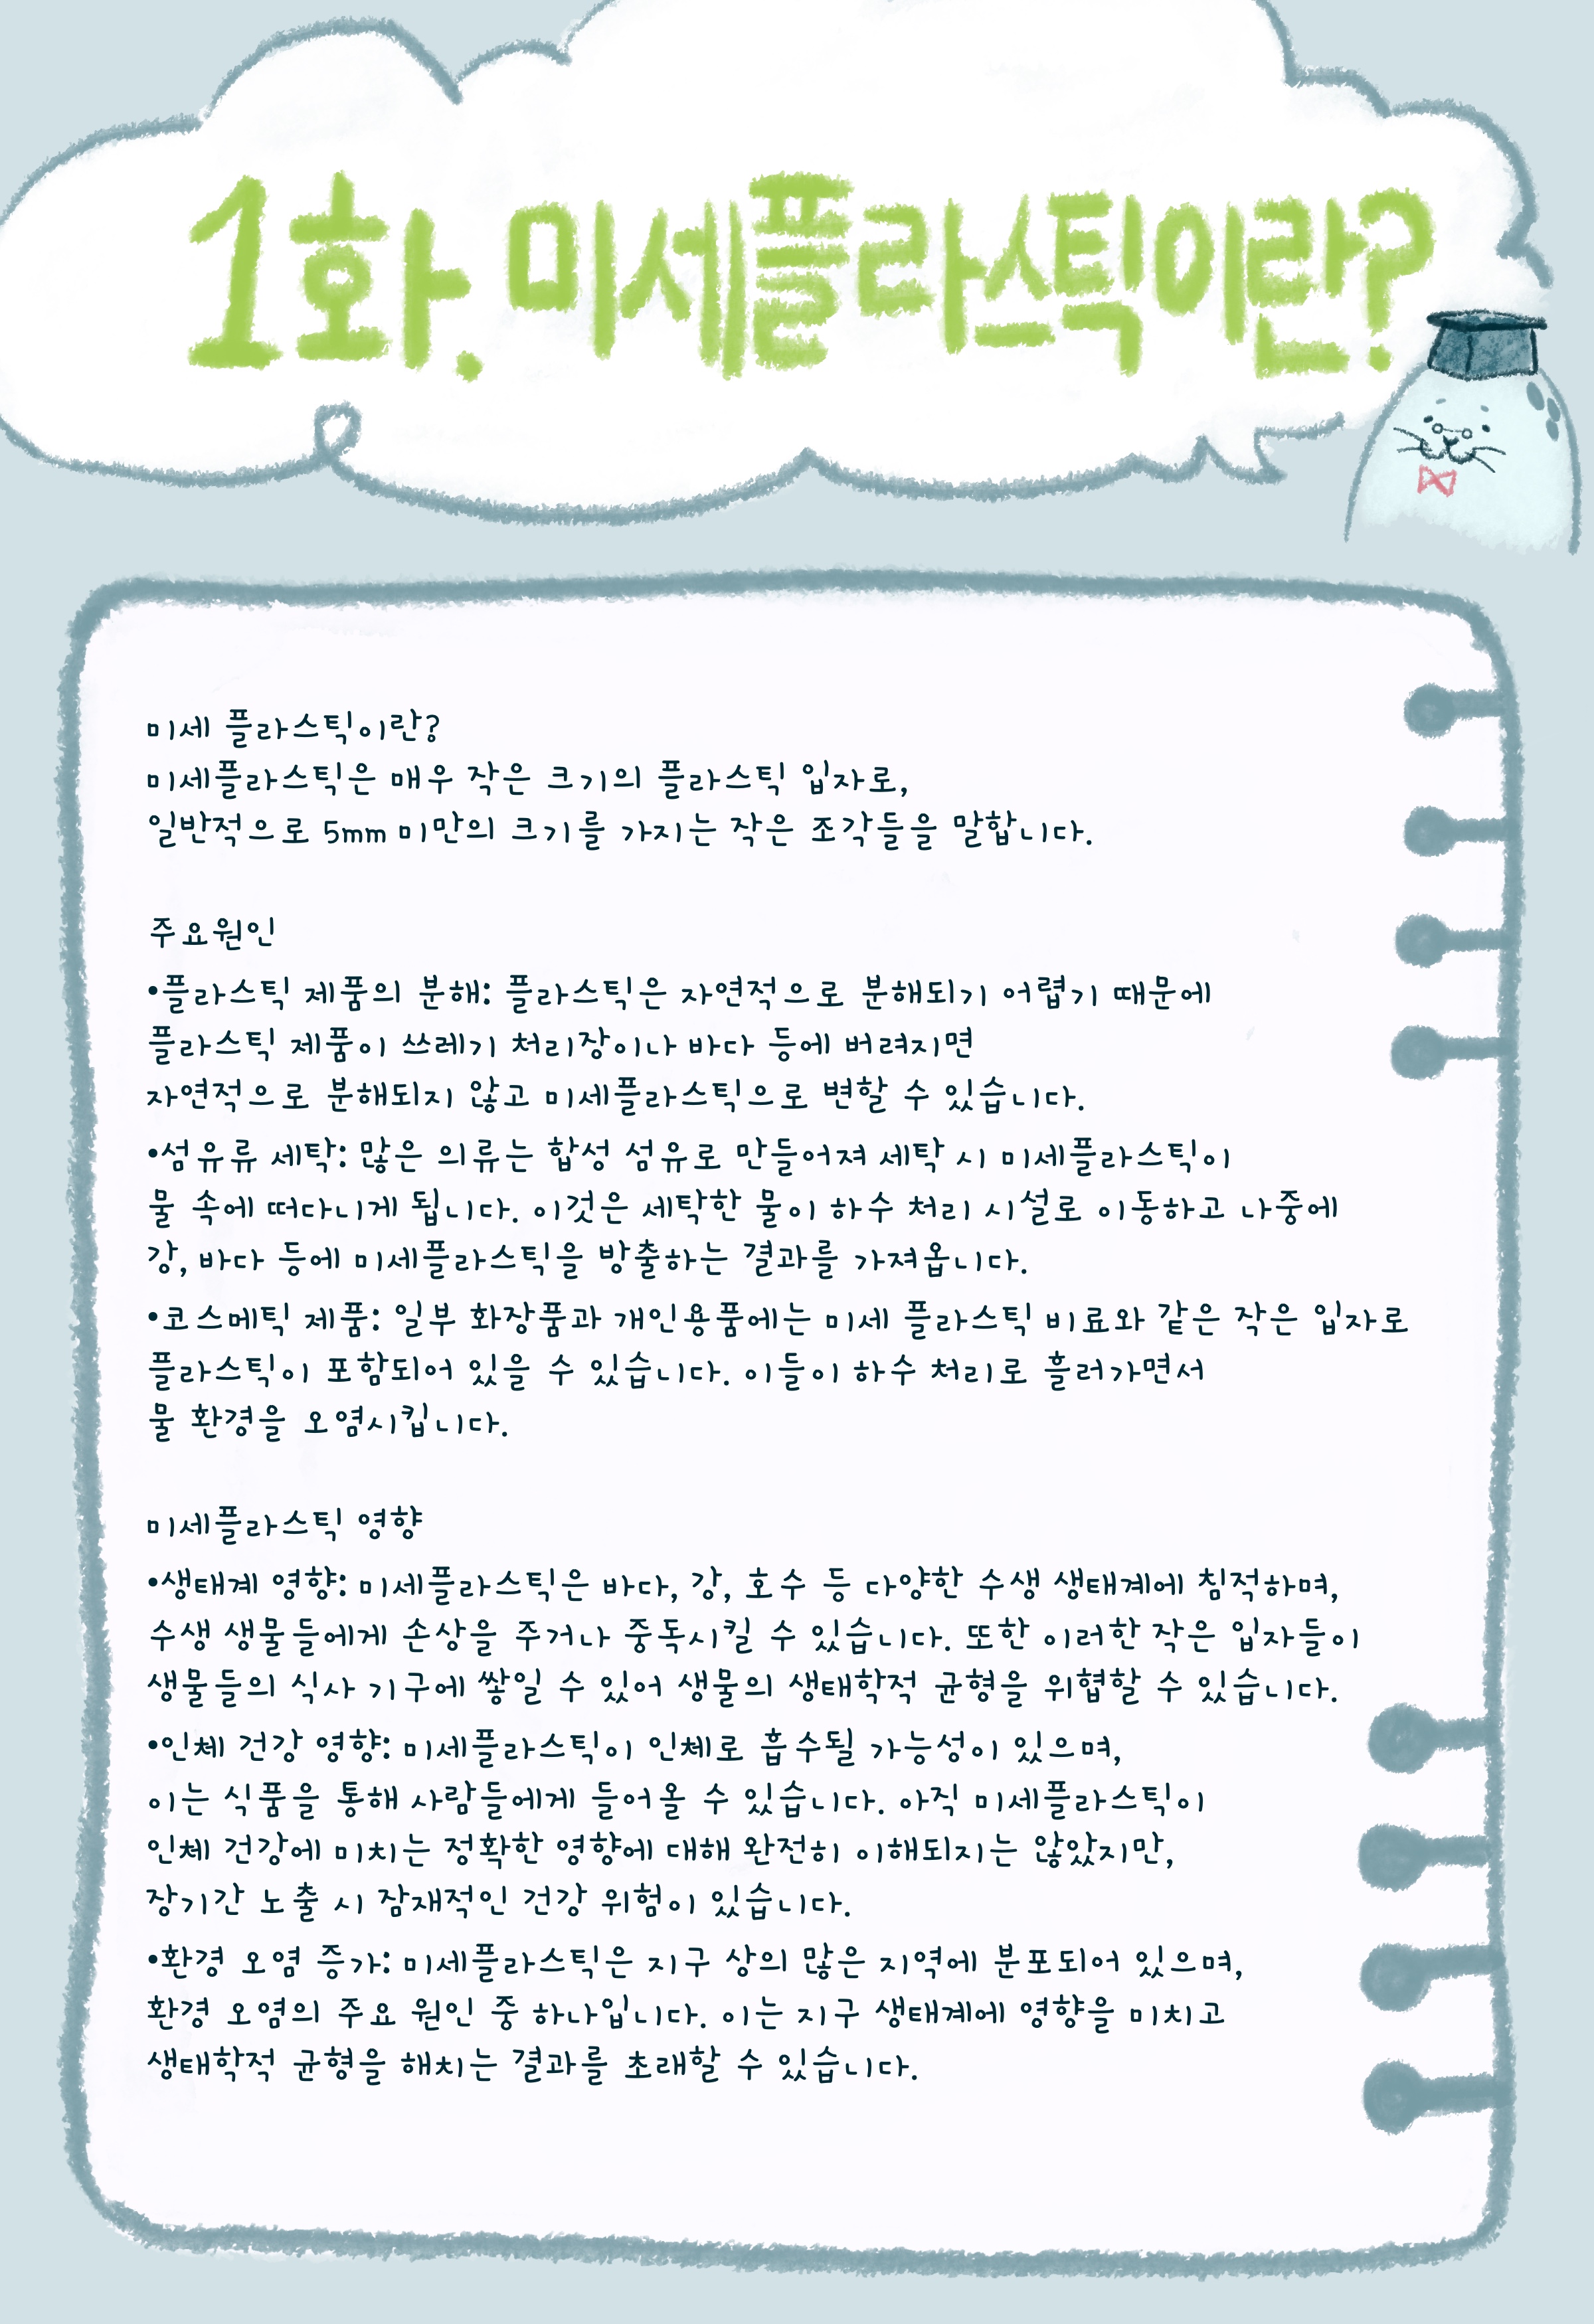 1화. 미세플라스틱이란?
미세 플라스틱이란?
미세플라스틱은 매우 작은 크기의 플라스틱 입자로,
일반적으로 5mm 미만의 크기를 가지는 작은 조각들을 말합니다.
주요원인
•플라스틱 제품의 분해: 플라스틱은 자연적으로 분해되기 어렵기 때문에
플라스틱 제품이 쓰레기 처리장이나 바다 등에 버려지면
자연적으로 분해되지 않고 미세플라스틱으로 변할 수 있습니다.
•섬유류 세탁: 많은 의류는 합성 섬유로 만들어져 세탁 시 미세플라스틱이
물 속에 떠다니게 됩니다. 이것은 세탁한 물이 하수 처리 시설로 이동하고 나중에
강, 바다 등에 미세플라스틱을 방출하는 결과를 가져옵니다.
•코스메틱 제품: 일부 화장품과 개인용품에는 미세 플라스틱 비료와 같은 작은 입자로
플라스틱이 포함되어 있을 수 있습니다. 이들이 하수 처리로 흘러가면서
물 환경을 오염시킵니다.
미세플라스틱 영향
•생태계 영향: 미세플라스틱은 바다, 강, 호수 등 다양한 수생 생태계에 침적하며,
수생 생물들에게 손상을 주거나 중독시킬 수 있습니다. 또한 이러한 작은 입자들이
생물들의 식사 기구에 쌓일 수 있어 생물의 생태학적 균형을 위협할 수 있습니다.
•인체 건강 영향: 미세플라스틱이 인체로 흡수될 가능성이 있으며,
이는 식품을 통해 사람들에게 들어올 수 있습니다. 아직 미세플라스틱이
인체 건강에 미치는 정확한 영향에 대해 완전히 이해되지는 않았지만,
장기간 노출 시 잠재적인 건강 위험이 있습니다.
•환경 오염 증가: 미세플라스틱은 지구 상의 많은 지역에 분포되어 있으며,
환경 오염의 주요 원인 중 하나입니다. 이는 지구 생태계에 영향을 미치고
생태학적 균형을 해치는 결과를 초래할 수 있습니다.